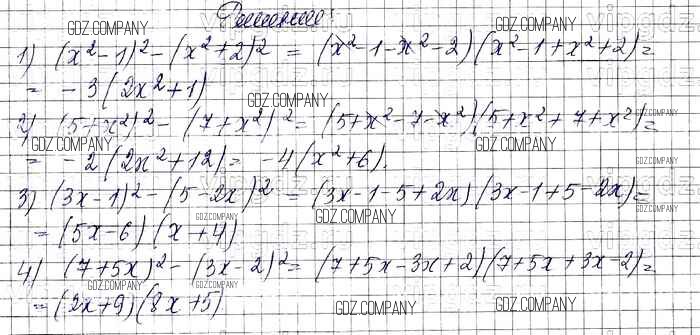 Решение:
1) (x² - 1)² - (x² + 2)² = (x² - 1 - x² - 2)(x² - 1 + x² + 2) =
= -3(2x² + 1)
2) (5 + x²)² - (7 + x²)² = (5 + x² - 7 - x²)(5 + x² + 7 + x²) =
= -2(2x² + 12) = -4(x² + 6).
3) (3x - 1)² - (5 - 2x)² = (3x - 1 - 5 + 2x)(3x - 1 + 5 - 2x) =
= (5x - 6)(x + 4)
4) (7 + 5x)² - (3x - 2)² = (7 + 5x - 3x + 2)(7 + 5x + 3x - 2) =
= (2x + 9)(8x + 5)
GDZ.COMPANY
GDZ.COMPANY
GDZ.COMPANY
GDZ.COMPANY
GDZ.COMPANY
GDZ.COMPANY
GDZ.COMPANY
GDZ.COMPANY
GDZ.COMPANY
GDZ.COMPANY
GDZ.COMPANY
GDZ.COMPANY
GDZ.COMPANY